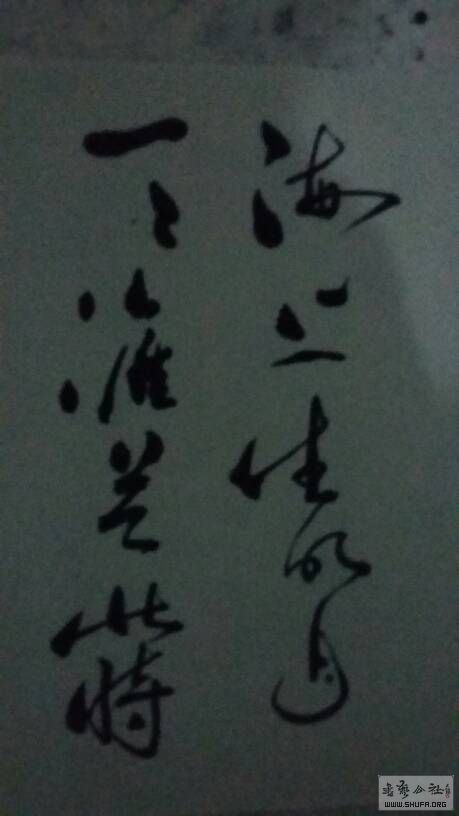 海上生明月
天涯共此時
書藝公社
WWW.SHUFA.ORG